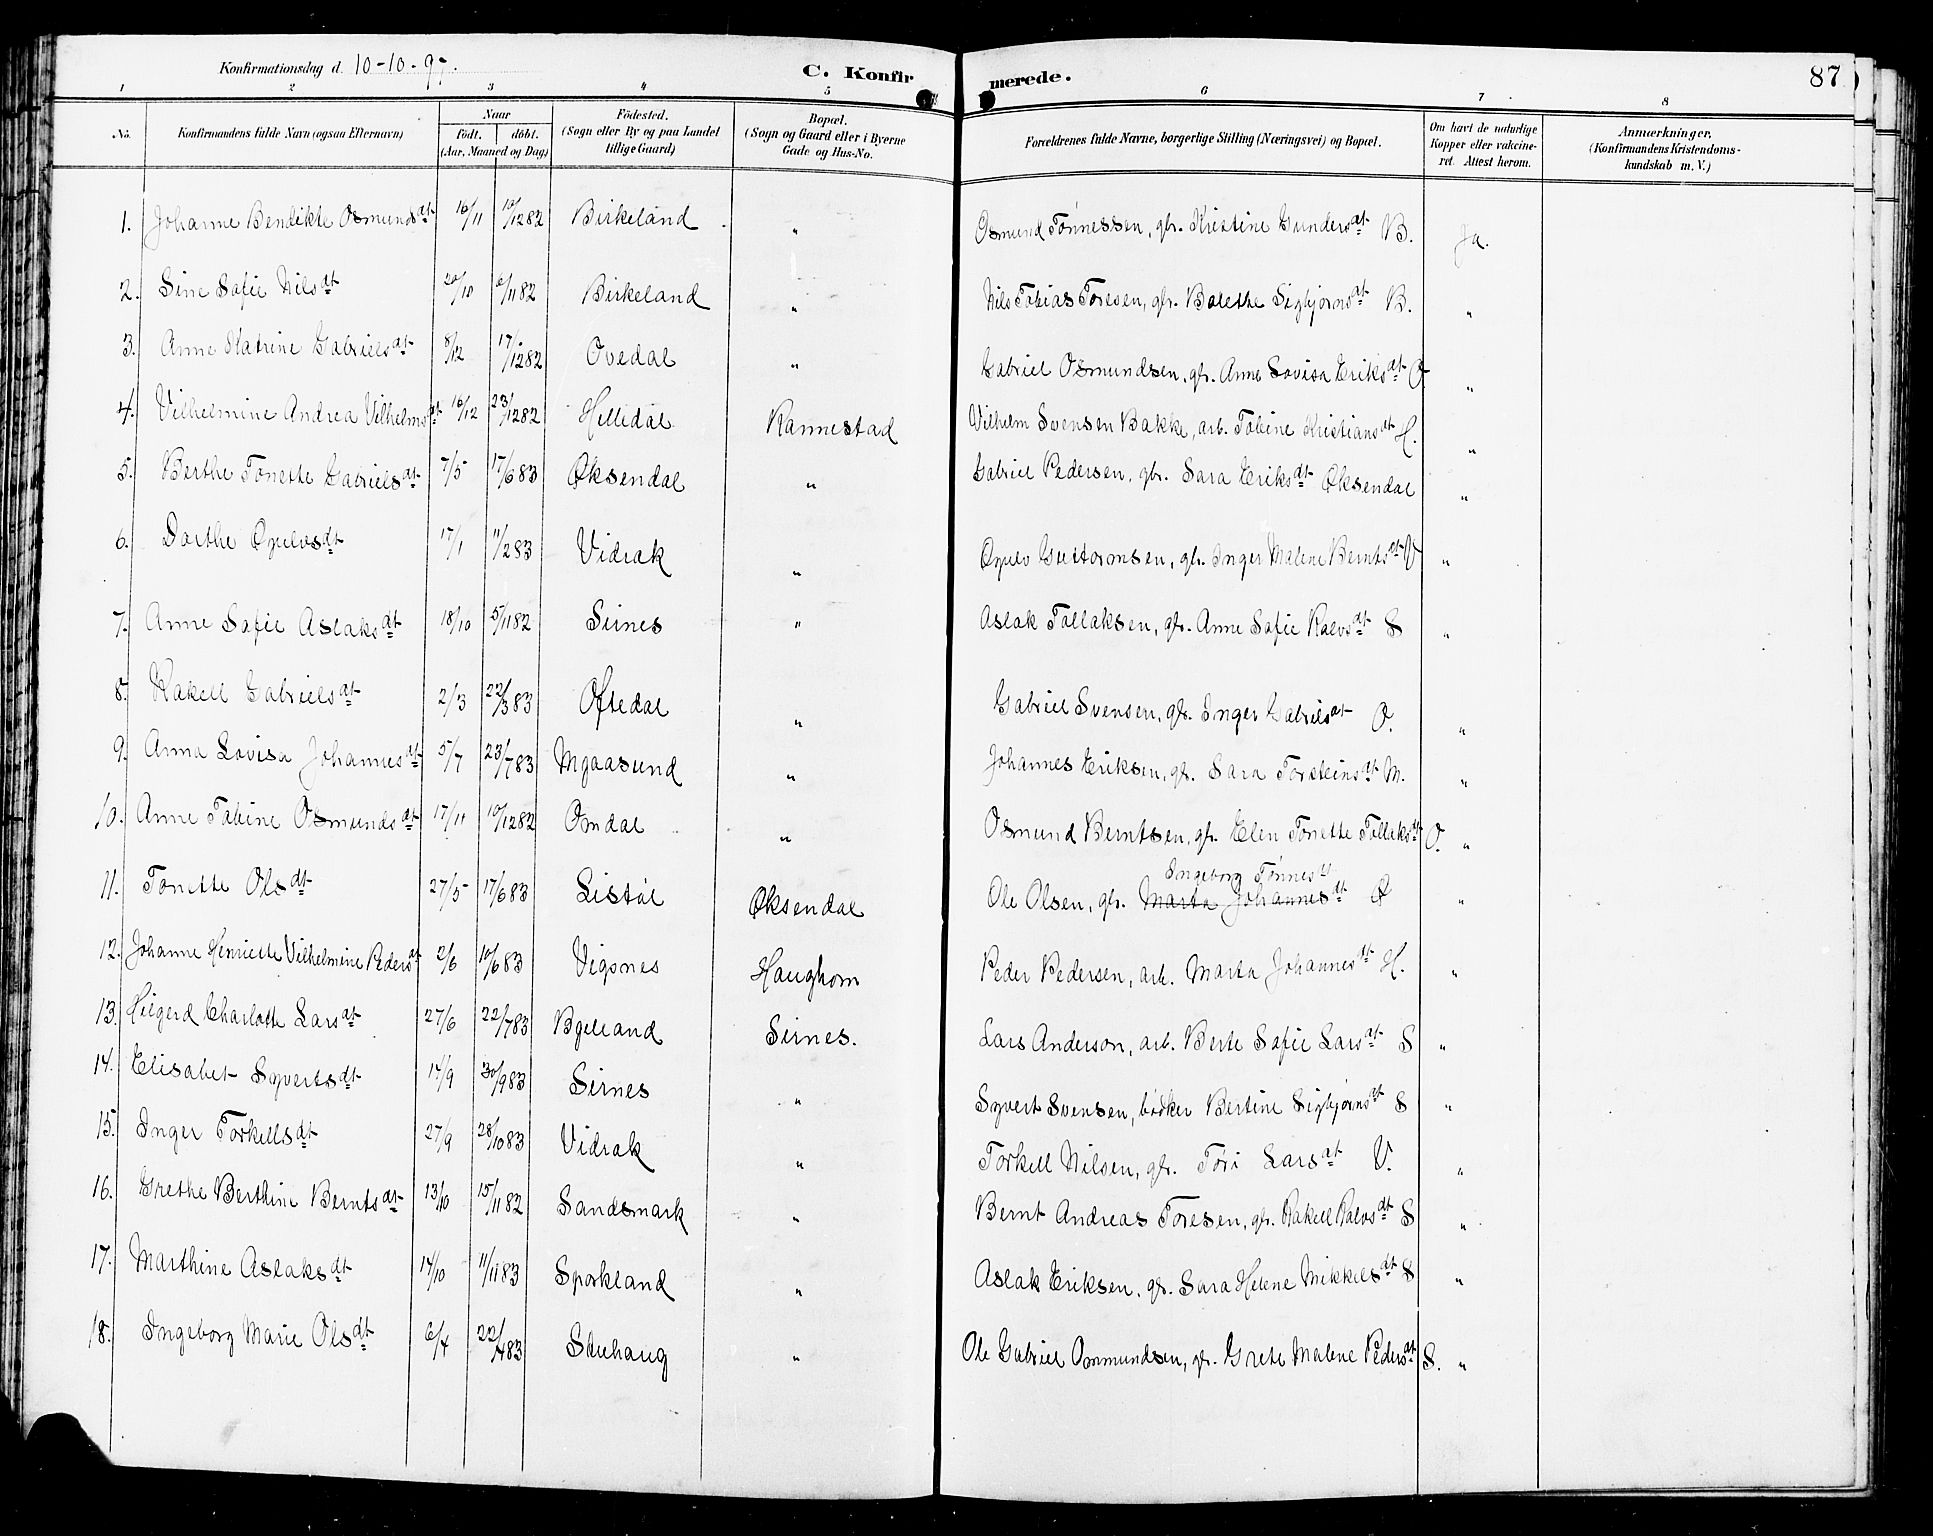 Konfirmationsdag d. 10-10-97.
C. Konfirmerede.
87
1 2 3 4 5 6 7 8
No.
Konfirmandens fulde Navn (ogsaa Efternavn)
Naar
født. døbt.
(Aar, Maaned og Dag)
Födested.
(Sogn eller By og paa Landet
tillige Gaard)
Bopæl.
(Sogn og Gaard eller i Byerne
Gade og Hus-No.
Forældrenes fulde Navne, borgerlige Stilling (Næringsvei) og Bopæl.
Om havt de naturlige
Kopper eller vakcine-
ret. Attest herom.
Anmærkninger.
(Konfirmandens Kristendoms-
kundskab m. V.)
1. Johanne Bendikte Osmundsdt 16/11 10/1282 Birkeland " Osmund Tønnessen, gbr. Kristine Gundersdt B. Ja.
2. Sine Sofie Nilsdt 20/10 6/1182 Birkeland " Nils Tobias Toresen, gbr. Bolethe Sigbjørnsdt B. "
3. Anne Katrine Gabrielsdt 8/12 17/1282 Ovedal " Gabriel Osmundsen, gbr. Anne Lovisa Eriksdt O "
4. Vilhelmine Andrea Vilhelmsdt 16/12 23/1282 Helledal Rannestad Vilhelm Svensen Bakke, arb. Tobine Kristiansdt H. "
5. Berthe Tonette Gabrielsdt 7/5 17/683 Øksendal " Gabriel Pedersen, gbr. Sara Eriksdt Øksendal "
6. Dorthe Øyulvsdt 17/1 11/283 Vidrak " Øyulv Guttormsen, gbr. Inger Malene Berntsdt V "
7. Anne Sofie Aslaksdt 18/10 5/1182 Sirnes " Aslak Tollaksen, gbr. Anne Sofie Ralvsdt S "
8. Rakell Gabrielsdt 2/3 22/383 Oftedal " Gabriel Svensen, gbr. Inger Gabrielsdt O. "
9. Anna Lovisa Johannesdt 5/7 23/783 Mgaasund " Johannes Eriksen, gbr. Sara Torsteinsdt M. "
10. Anne Tobine Osmundsdt 17/11 10/1282 Omdal " Osmund Berntsen, gbr. Elen Tonette Tollaksdt O. "
Ingeborg Tønnesdt
11. Tonette Olsdt 27/5 17/683 Listøl Øksendal Ole Olsen, gbr. Marta Johannesdt Ø "
12. Johanne Henriette Vilhelmine Pedersdt 2/6 10/683 Vigsnes Haughom Peder Pedersen, arb. Marta Johannesdt H. "
13. Hilgerd Charlotte Larsdt 27/6 22/783 Bgelland Sirnes. Lars Anderson, arb. Berte Sofie Larsdt S "
14. Elisabet Syvertsdt 14/9 30/983 Sirnes " Syvert Svensen, bødker Bertine Sigbjørnsdt S "
15. Inger Torkellsdt 27/9 28/1083 Vidrak " Torkell Nilsen, gbr. Tøri Larsdt V. "
16. Grethe Berthine Berntsdt 13/10 15/1182 Sandsmark " Bernt Andreas Toresen, gbr. Rakell Ralvsdt S "
17. Marthine Aslaksdt 14/10 11/1183 Sporkland " Aslak Eriksen, gbr. Sara Helene Mikkelsdt S "
18. Ingeborg Marie Olsdt 6/4 22/483 Skuhaug " Ole Gabriel Ommundsen, gbr. Grete Malene Pedersdt S. "